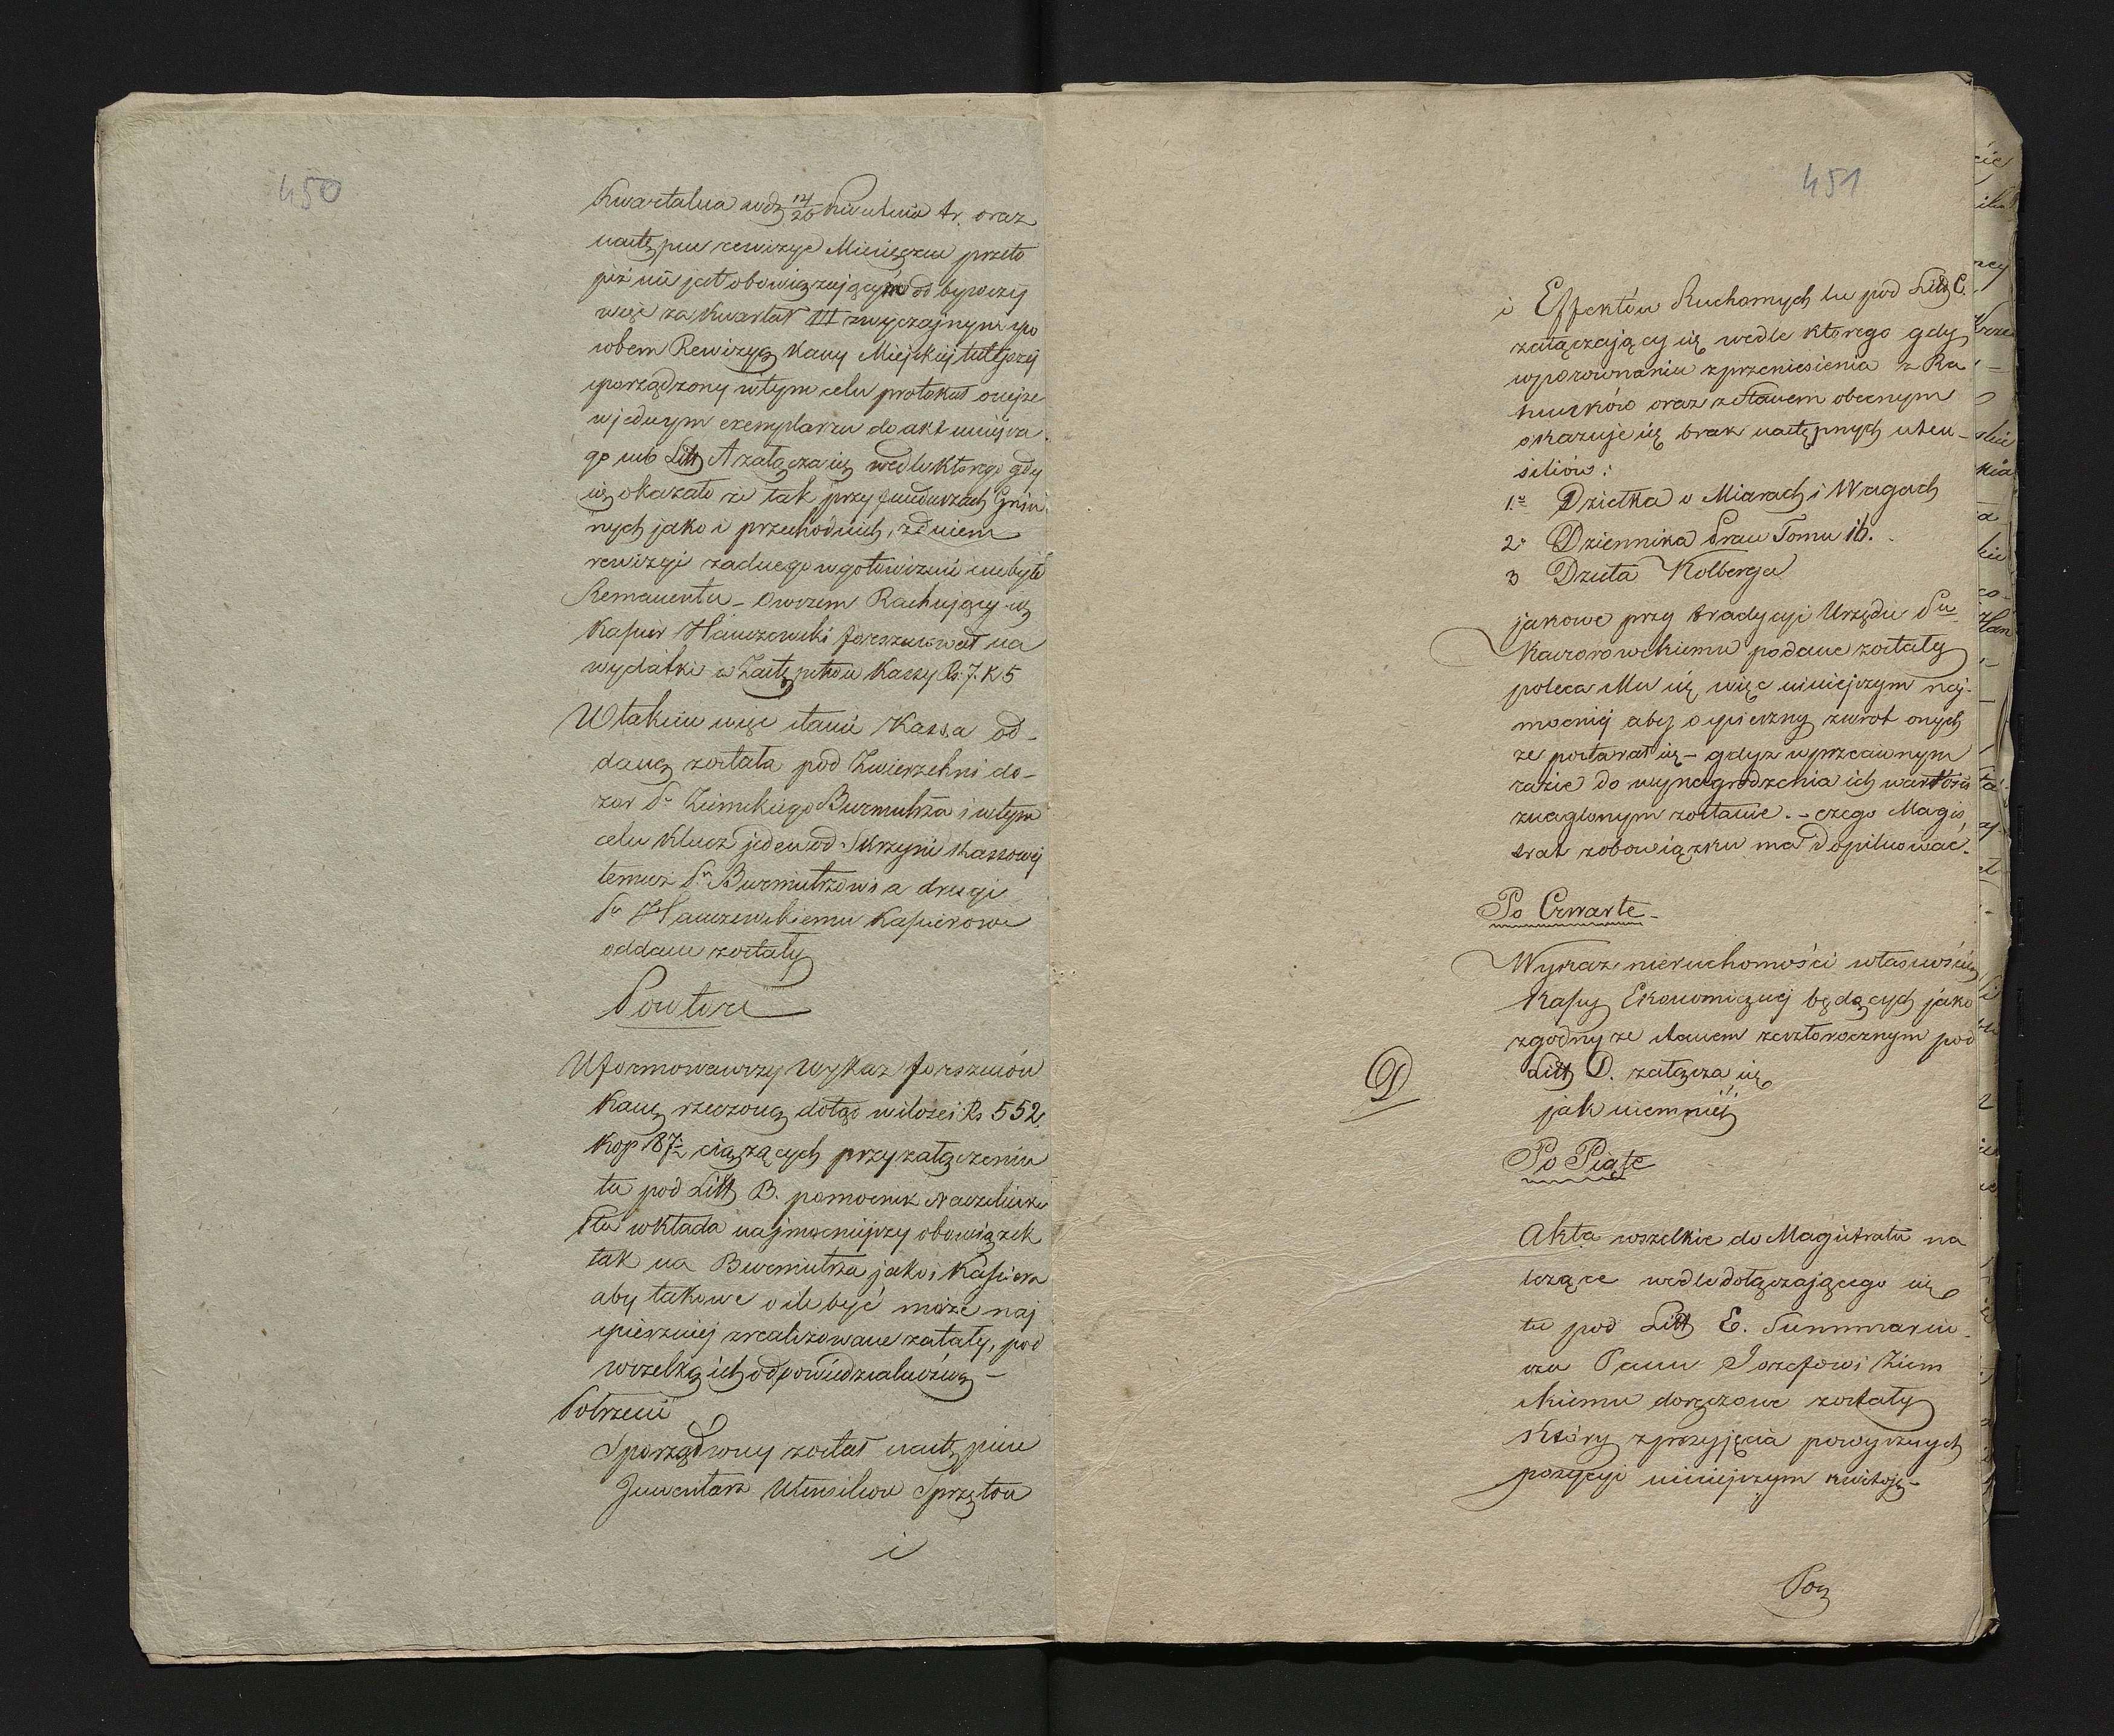 450
Kwartalna w dz 14/26 Kwietnia t.r. oraz
następnie rewizye Miesięczne przeto
już nie jest obowiązującym odbywszy
więc za Kwartał III zwyczajnym spo
sobem Rewizyą Kassy Miejskiej tutejszej
sporządzony w tym celu protokuł onejże
w jednym exemplarzu do akt miejsca
go sub Litt A załącza się wedle którego gdy
się okazało że tak przy funduszach
nych jako i przechodnich, z dniem
rewizyi żadnego w gotowiźnie nie było
Remanentu – Owszem Rachujący się
Kassier forszusował na
wydatki w Zastępstwie Kassy Rs. 7. K 5
W takim więc stanie Kassa od-
daną została pod Zwierzchni do-
zór Pa Burmistrza i w tym
celu Klucz jeden od Skrzyni Kassowej
temuż Pu Burmistrzowi a drugi
Pu Kassierowi
oddane zostały
Powtóre
Uformowawszy Wykaz forszusów
Kassę rzeczoną dotąd w ilości Rs 552
Kop 87½ ciążących przy załączeniu
tu pod Litt B. pomocnik Naczelnika
Ptu wkłada najmocniejszy obowiązek
tak na Burmistrza jako i Kassiera
aby takowe o ile być może naj
spieszniej zrealizowane zostały, pod
wszelką ich odpowiedzialnością –
Potrzecie
Sporządzony został następnie
Inwentarz Utensiliów Sprzętów
i
451
i Effektów Ruchomych tu pod Litt C.
załączający się wedle którego gdy
w porównaniu z przeniesienia z Ra
hunków oraz ze stanem obecnym
okazuje się brak następnych uten-
siliów:
1o Dziełka o Miarach i Wagach
2o Dziennika Praw Tomu 16.
3 Dzieła Kolberga
jakowe przy tradycyi Urzędu Pu
podane zostały
poleca Mu się więc niniejszym naj-
mocniej aby o spieszny zwrot onych
ze postarał się – gdyż w przeciwnym
razie do wynagrodzenia ich wartości
znaglonym zostanie. – czego Magis
trat z obowiązku ma dopilnować.
Po Czwarte –
Wykaz nieruchomości własnością
Kassy Ekonomicznej będących jako
zgodny ze stanem zeszłorocznym pod
D
Litt D. załącza się
jak niemniej
Po Piąte
Akta wszelkie do Magistratu na
leżące wedle dołączającego się
tu pod Litt E. Summariu-
sza Panu Józefowi Ziem
skiemu doręczone zostały
który z przyjęcia powyższych
pozycyi niniejszym kwituje –